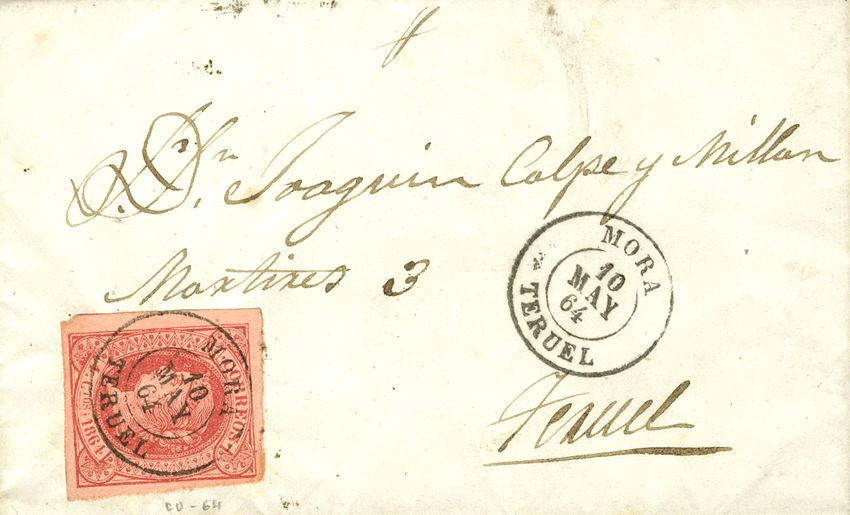 S. Dn. Joaquin Calpe y Millan
Martires 3
MORA
10
MAY
64
TERUEL
Teruel
MORA
10
MAY
64
TERUEL
CORREOS
1864
CU-64